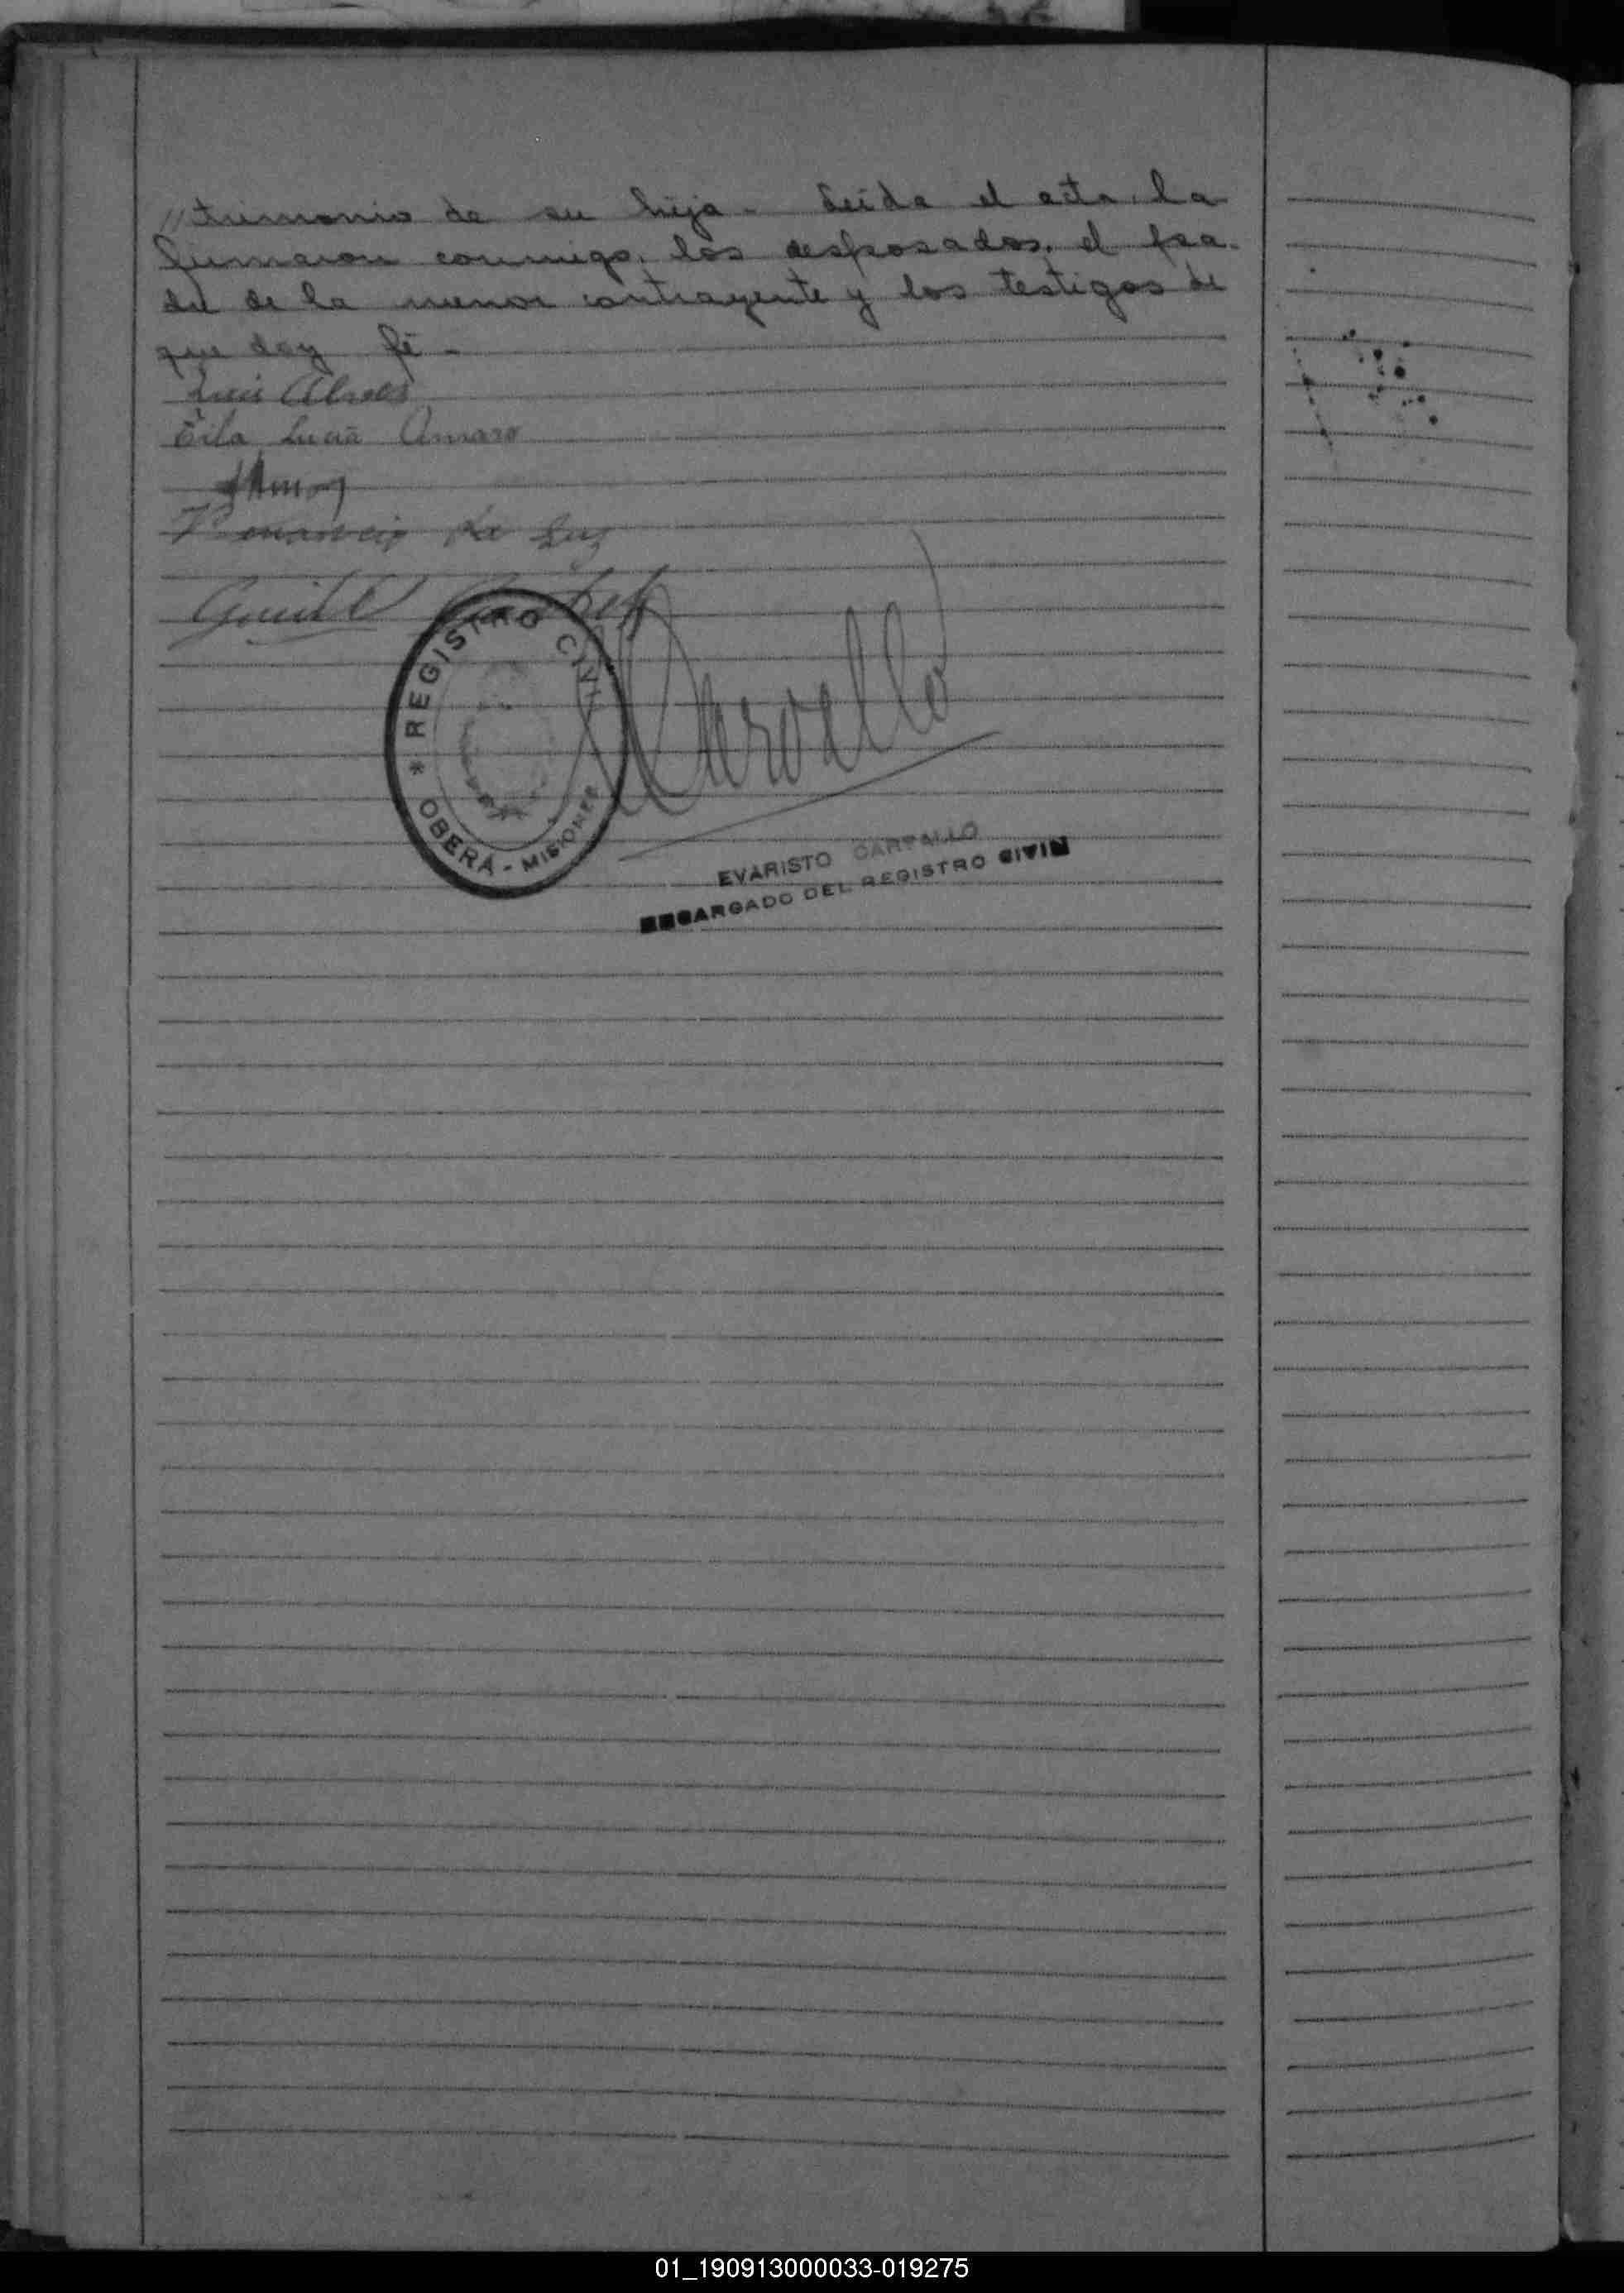 //trimonio de su hija - Leida el acta, la
firmaron conmigo, los desposados, el pa-
dre de la menor contrayente y los testigos de
que doy fé -
Luis Alves
Eila Lucia Amaro
Venancio da Luz
REGISTRO CIVIL
* OBERÁ - MISIONES
Carvallo
EVARISTO CARVALLO
ENCARGADO DEL REGISTRO CIVIL
01_190913000033-019275